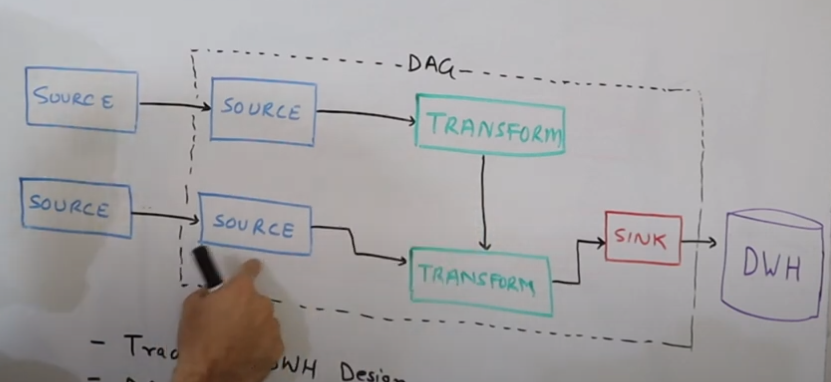 DAG
SOURCE
SOURCE
TRANSFORM
SOURCE
SOURCE
TRANSFORM
SINK
DWH
- DWH Design